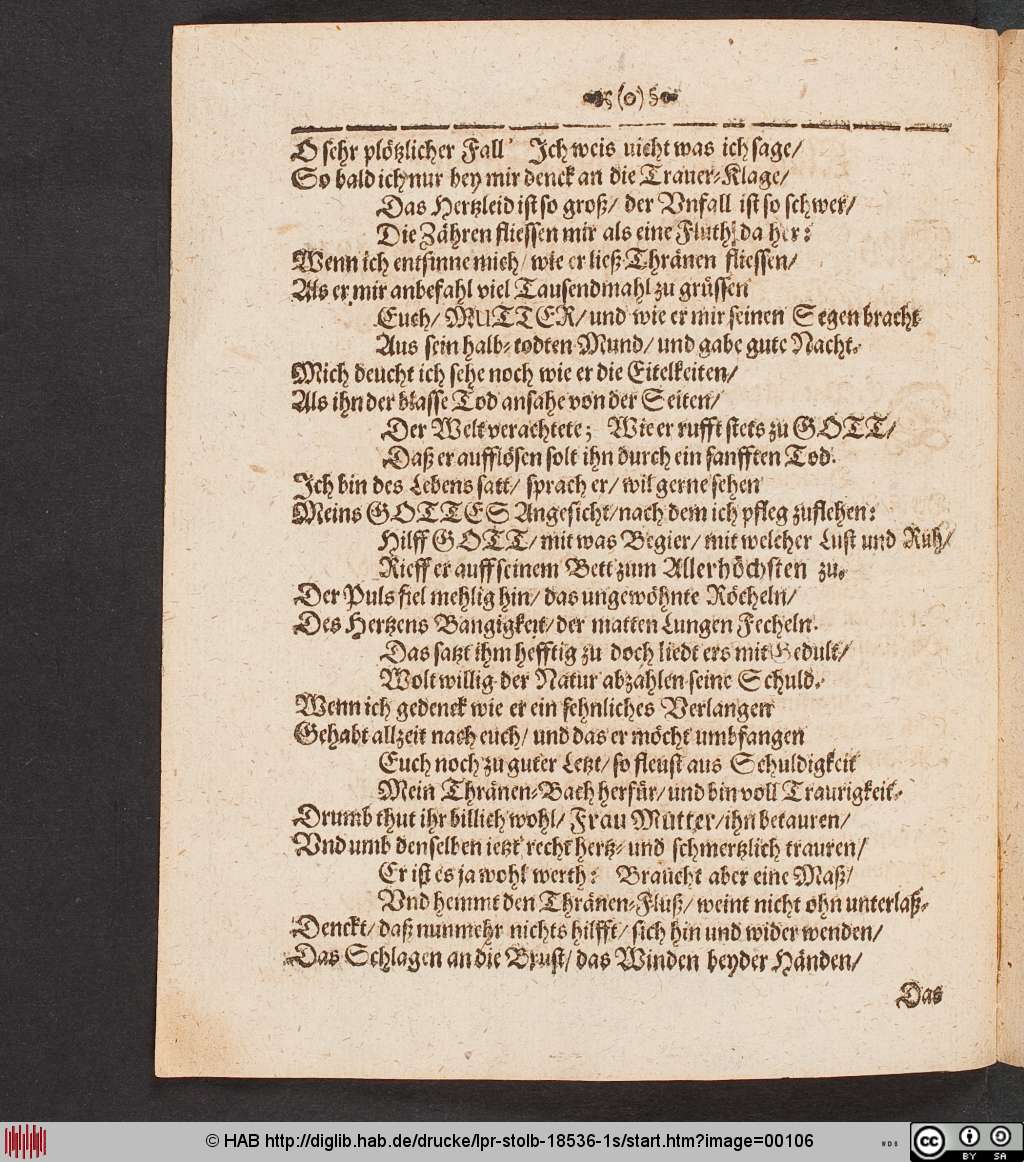 (o)
O sehr plötzlicher Fall! Ich weis nicht was ich sage/
So bald ich nur bey mir denck an die Trauer-Klage/
Das Hertzleid ist so groß/ der Vnfall ist so schwer/
Die Zähren fliessen mir als eine Fluth da her:
Wenn ich entsinne mich/ wie er ließ Thränen fliessen/
Als er mir anbefahl viel Tausendmahl zu grüssen
Euch/ MUTTER/ und wie er mir seinen Segen bracht
Aus sein halb-todten Mund/ und gabe gute Nacht.
Mich deucht ich sehe noch wie er die Eitelkeiten/
Als ihn der blasse Tod ansahe von der Seiten/
Der Welt verachtete; Wie er rufft stets zu GOTT/
Daß er aufflösen solt ihn durch ein sanfften Tod.
Ich bin des Lebens satt/ sprach er/ wil gerne sehen
Meins GOTTES Angesicht/ nach dem ich pfleg zuflehen:
Hilff GOTT/ mit was Begier/ mit welcher Lust und Ruh/
Rieff er auff seinem Bett zum Allerhöchsten zu.
Der Puls fiel mehlig hin/ das ungewöhnte Röcheln/
Des Hertzens Bangigkeit/ der matten Lungen Fecheln.
Das satzt ihm hefftig zu doch liedt ers mit Gedult/
Wolt willig der Natur abzahlen seine Schuld.
Wenn ich gedenck wie er ein sehnliches Verlangen
Gehabt allzeit nach euch/ und das er möcht umbfangen
Euch noch zu guter Letzt/ so fleust aus Schuldigkeit
Mein Thränen-Bach herfür/ und bin voll Traurigkeit.
Drumb thut ihr billich wohl/ Frau Mutter/ ihn betauren/
Vnd umb denselben ietzt recht hertz- und schmertzlich trauren/
Er ist es ja wohl werth: Braucht aber eine Maß/
Vnd hemmt den Thränen-Fluß/ weint nicht ohn unterlaß.
Denckt/ daß nunmehr nichts hilfft/ sich hin und wider wenden/
Das Schlagen an die Brust/ das Winden beyder Händen/
Das
© HAB http://diglib.hab.de/drucke/lpr-stolb-18536-1s/start.htm?image=00106
cc BY SA